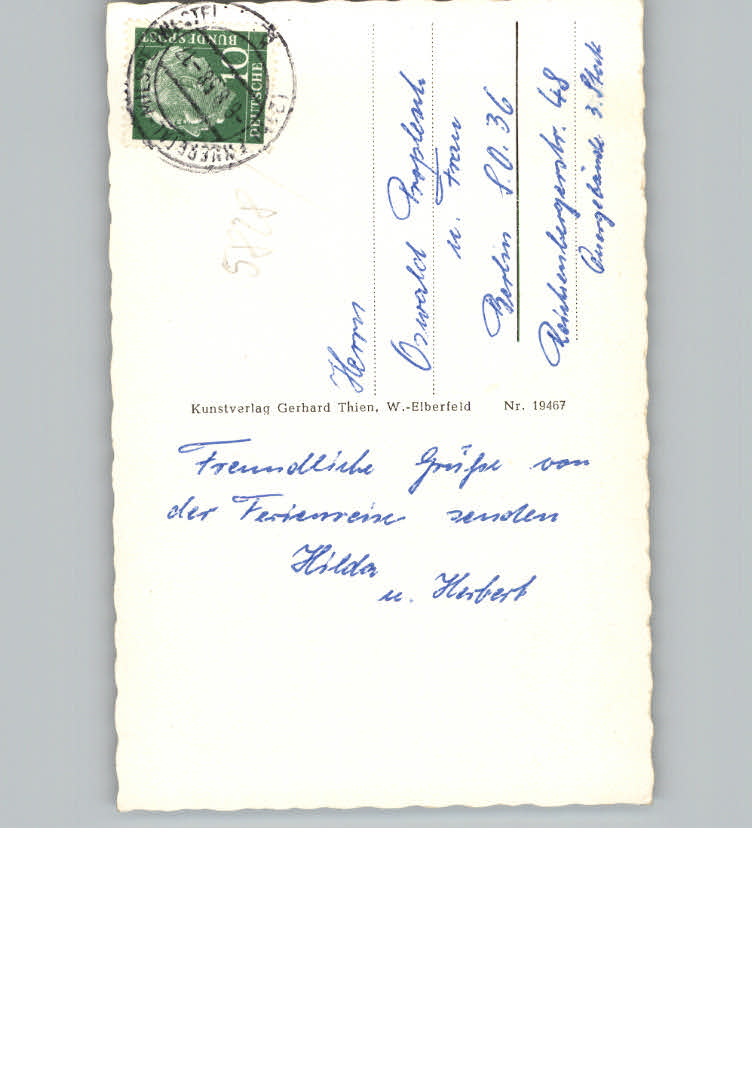 DEUTSCHE
BUNDESPOST
10
5885
Herrn
Oswald
u. Frau
Berlin S.O. 36
Reichenbergerstr. 48
Quergebäude 3. Stock
Kunstverlag Gerhard Thien, W.-Elberfeld Nr. 19467
Freundliche Grüße von
der Ferienreise senden
Hilda
u. Herbert